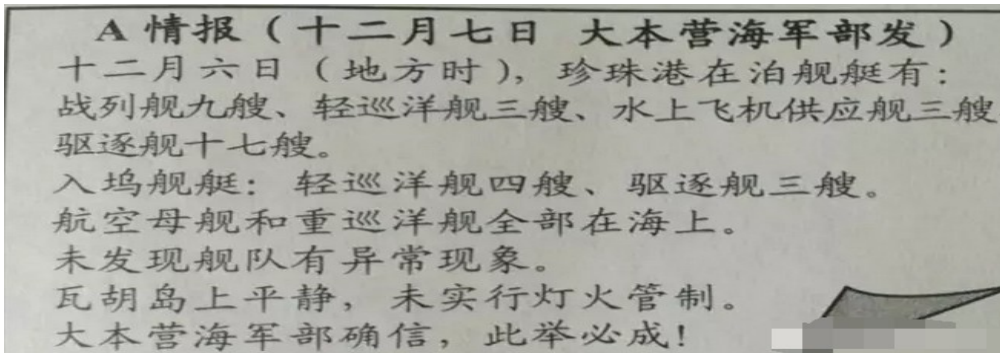 A 情报（十二月七日 大本营海军部发）
十二月六日（地方时），珍珠港在泊舰艇有：
战列舰九艘、轻巡洋舰三艘、水上飞机供应舰三艘
驱逐舰十七艘。
入坞舰艇：轻巡洋舰四艘、驱逐舰三艘。
航空母舰和重巡洋舰全部在海上。
未发现舰队有异常现象。
瓦胡岛上平静，未实行灯火管制。
大本营海军部确信，此举必成！